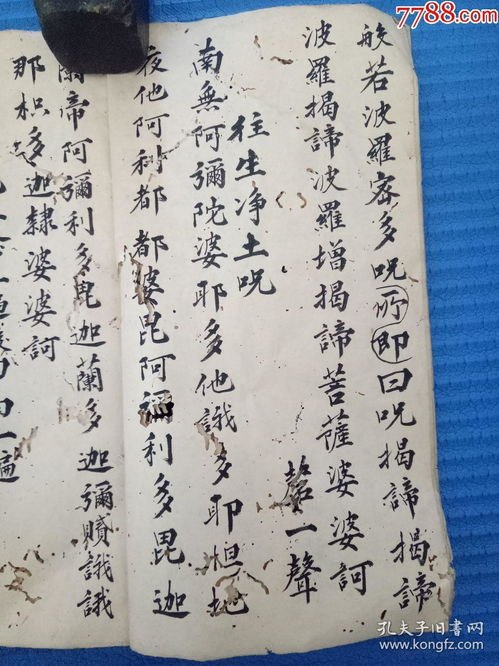 7788.com
般若波羅密多呪所即曰呪揭諦揭諦
波羅揭諦波羅增揭諦菩薩婆婆訶
磬一聲
往生净土呪
南無阿彌陀婆耶多他誐多耶怛地
夜他阿利都都婆毘阿彌利多毘迦
帝阿彌利多毘迦蘭多迦彌賾誐誐
那枳多迦隸婆婆訶
一遍
孔夫子旧书网
kongfz.com